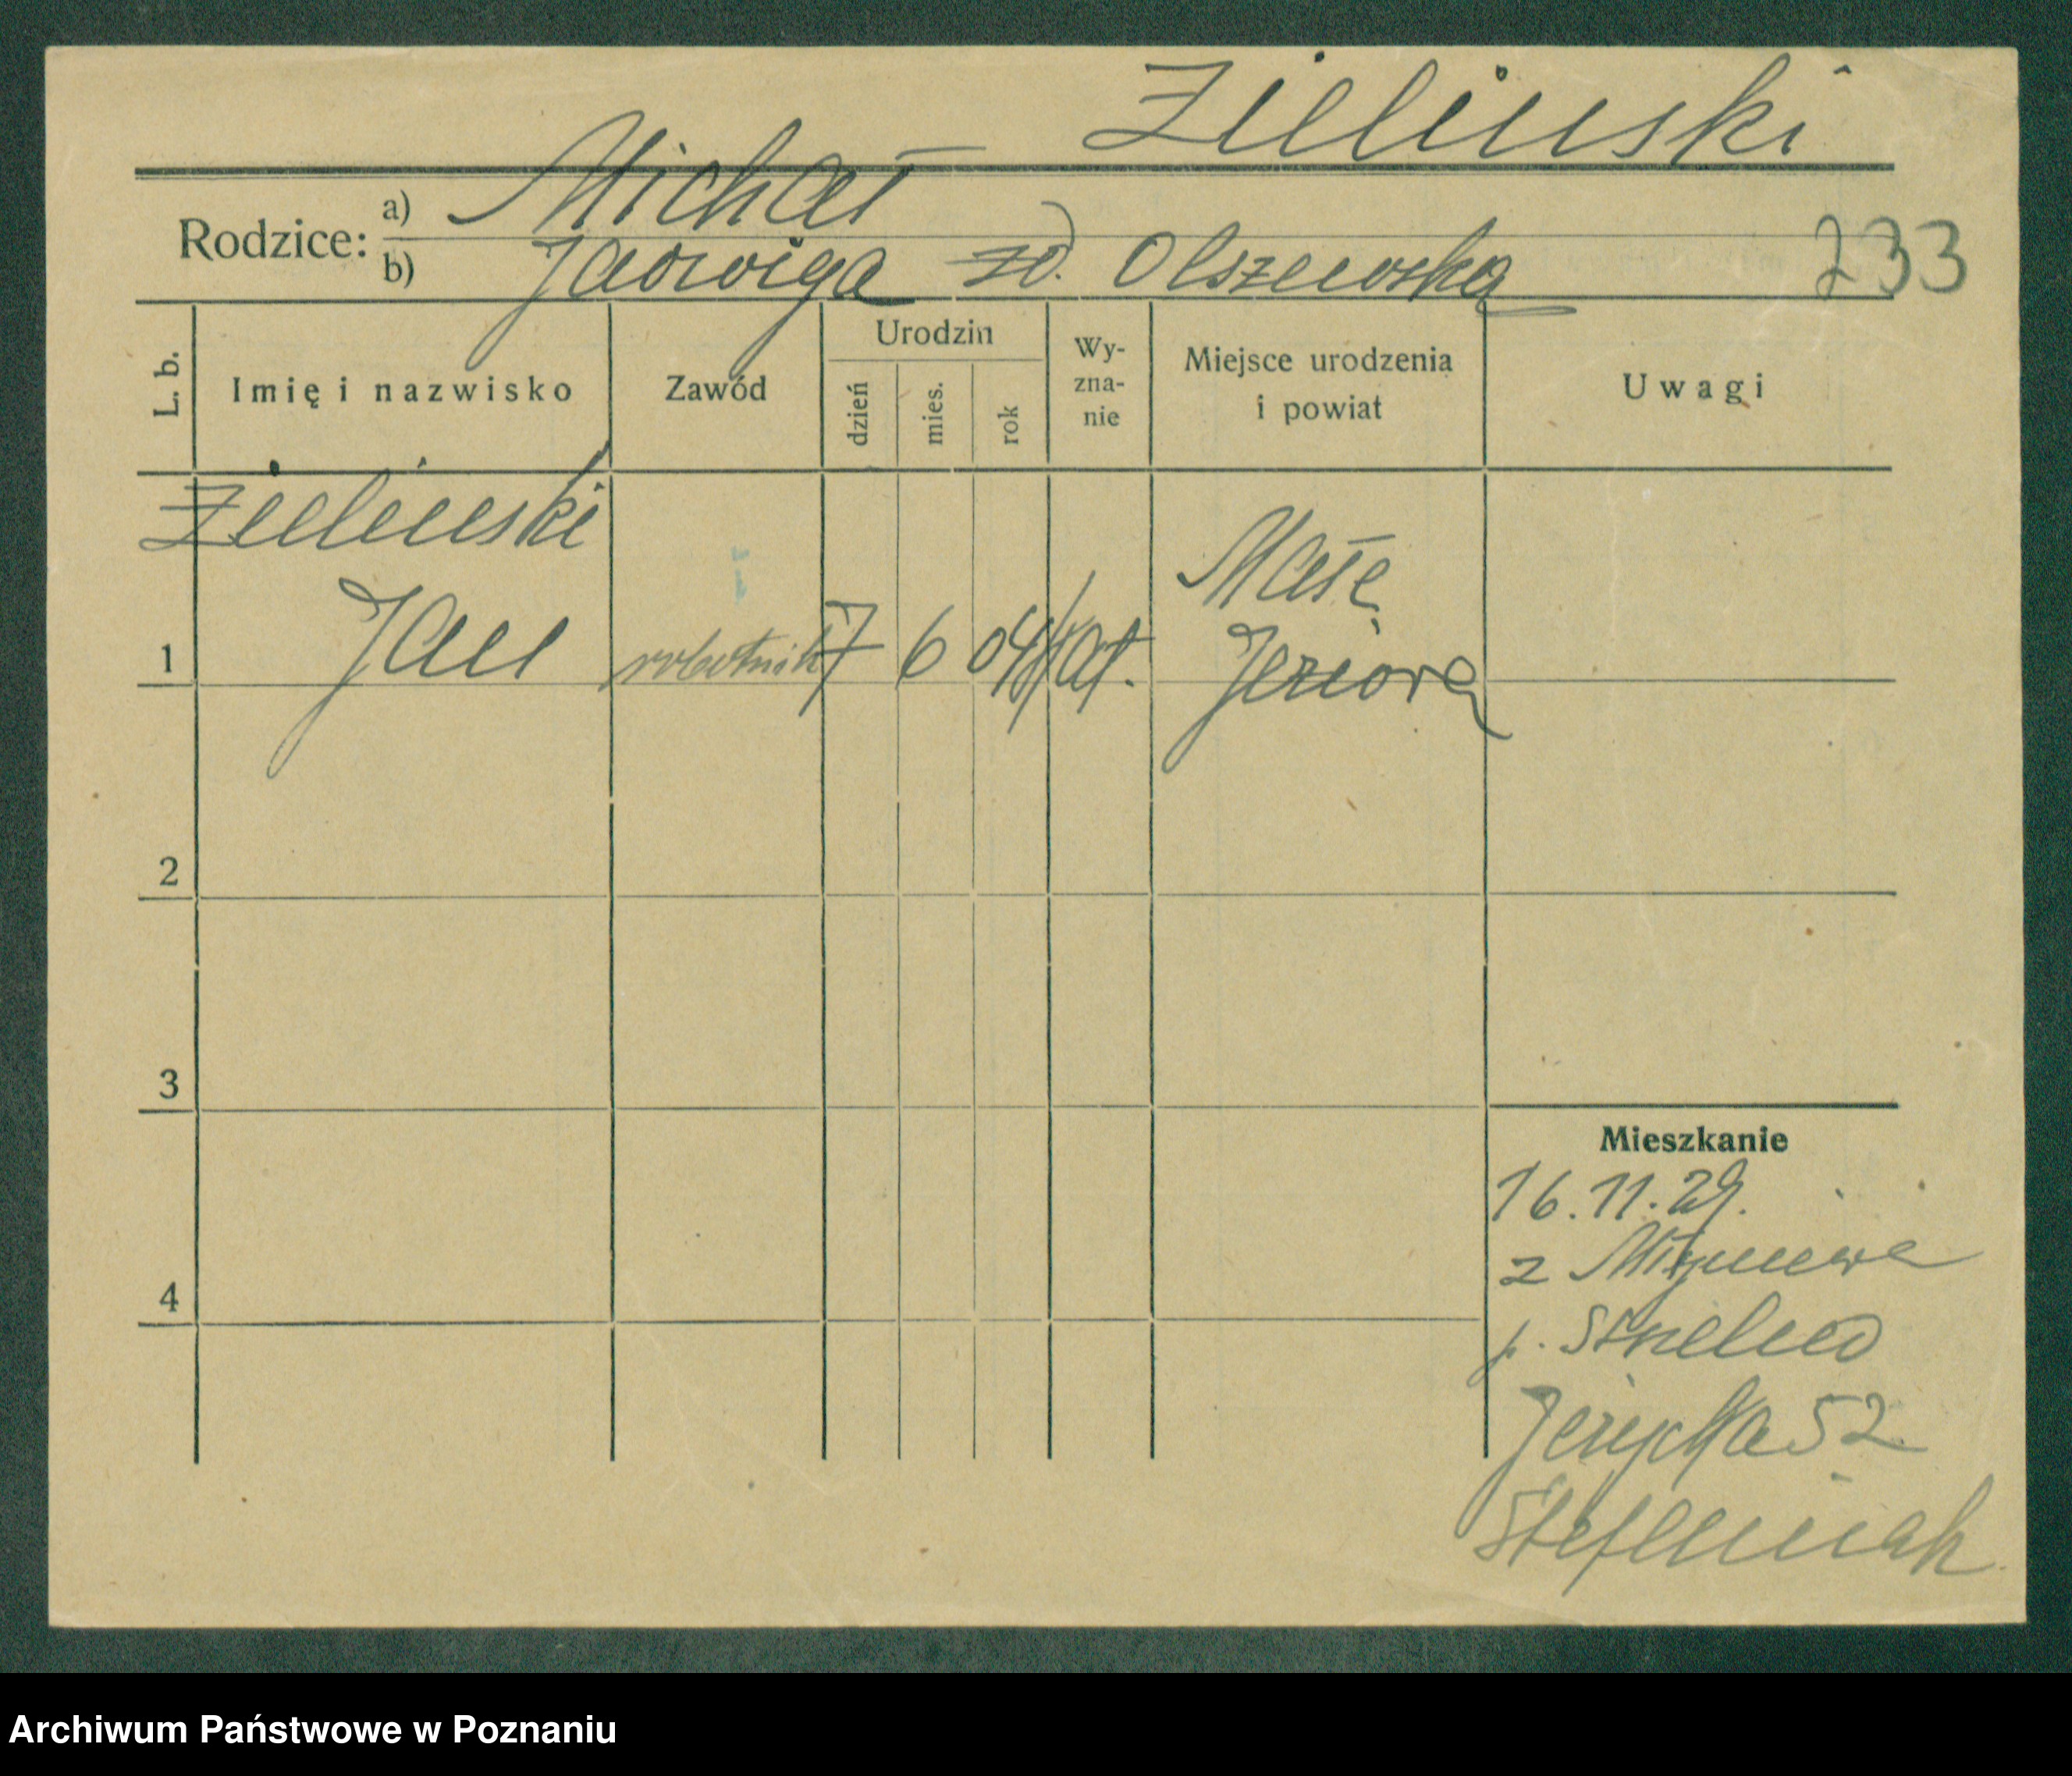 Zieliński
Rodzice: a) Michał
b) Jadwiga zd. Olszewską
233
L. b.
Imię i nazwisko
Zawód
Urodzin
dzień
mies.
rok
Wy-
zna-
nie
Miejsce urodzenia
i powiat
Uwagi
Zieliński
Jan
1
robotnik
7 6 04 kat.
Małe
Jeziorą
2
3
4
Mieszkanie
16.11.29.
z
p. Strzelno
Jeżycka 52
Stefaniak
Archiwum Państwowe w Poznaniu